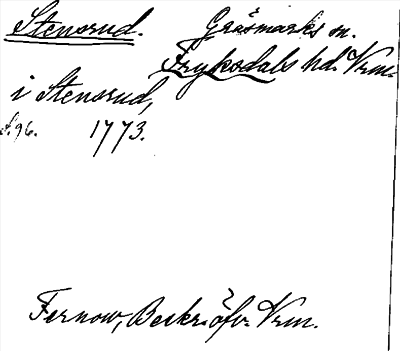 Stensrud. Gräsmarks sn.
Frykodals hd. Vrm.
i Stensrud,
S. 96. 1773.
Fernow, Beskr. öfv. Vrm.